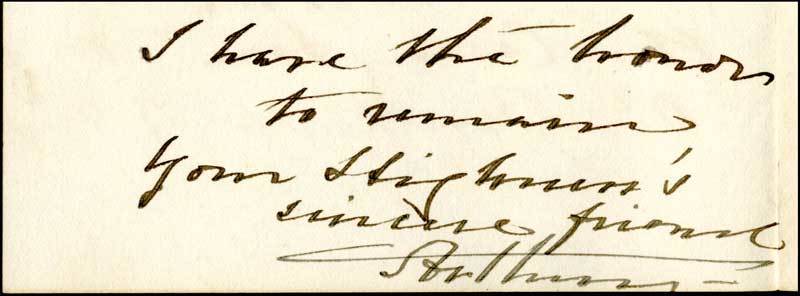 I have the honour
to remain
Your Highness's
sincere friend
Arthur